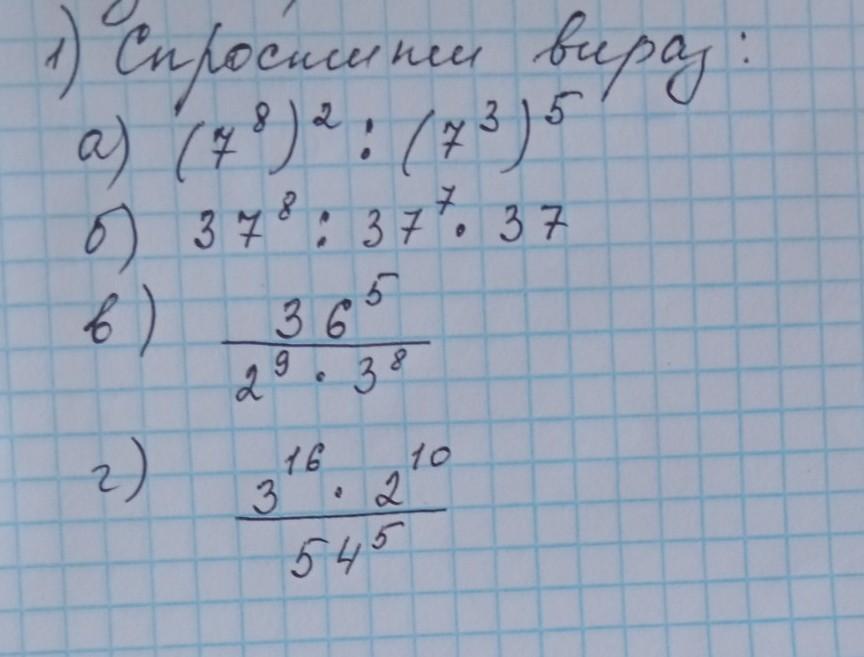 1) Спростити вираз:
а) (7⁸)² : (7³)⁵
б) 37⁸ : 37⁷ · 37
в) 36⁵
2⁹ · 3⁸
г) 3¹⁶ · 2¹⁰
54⁵